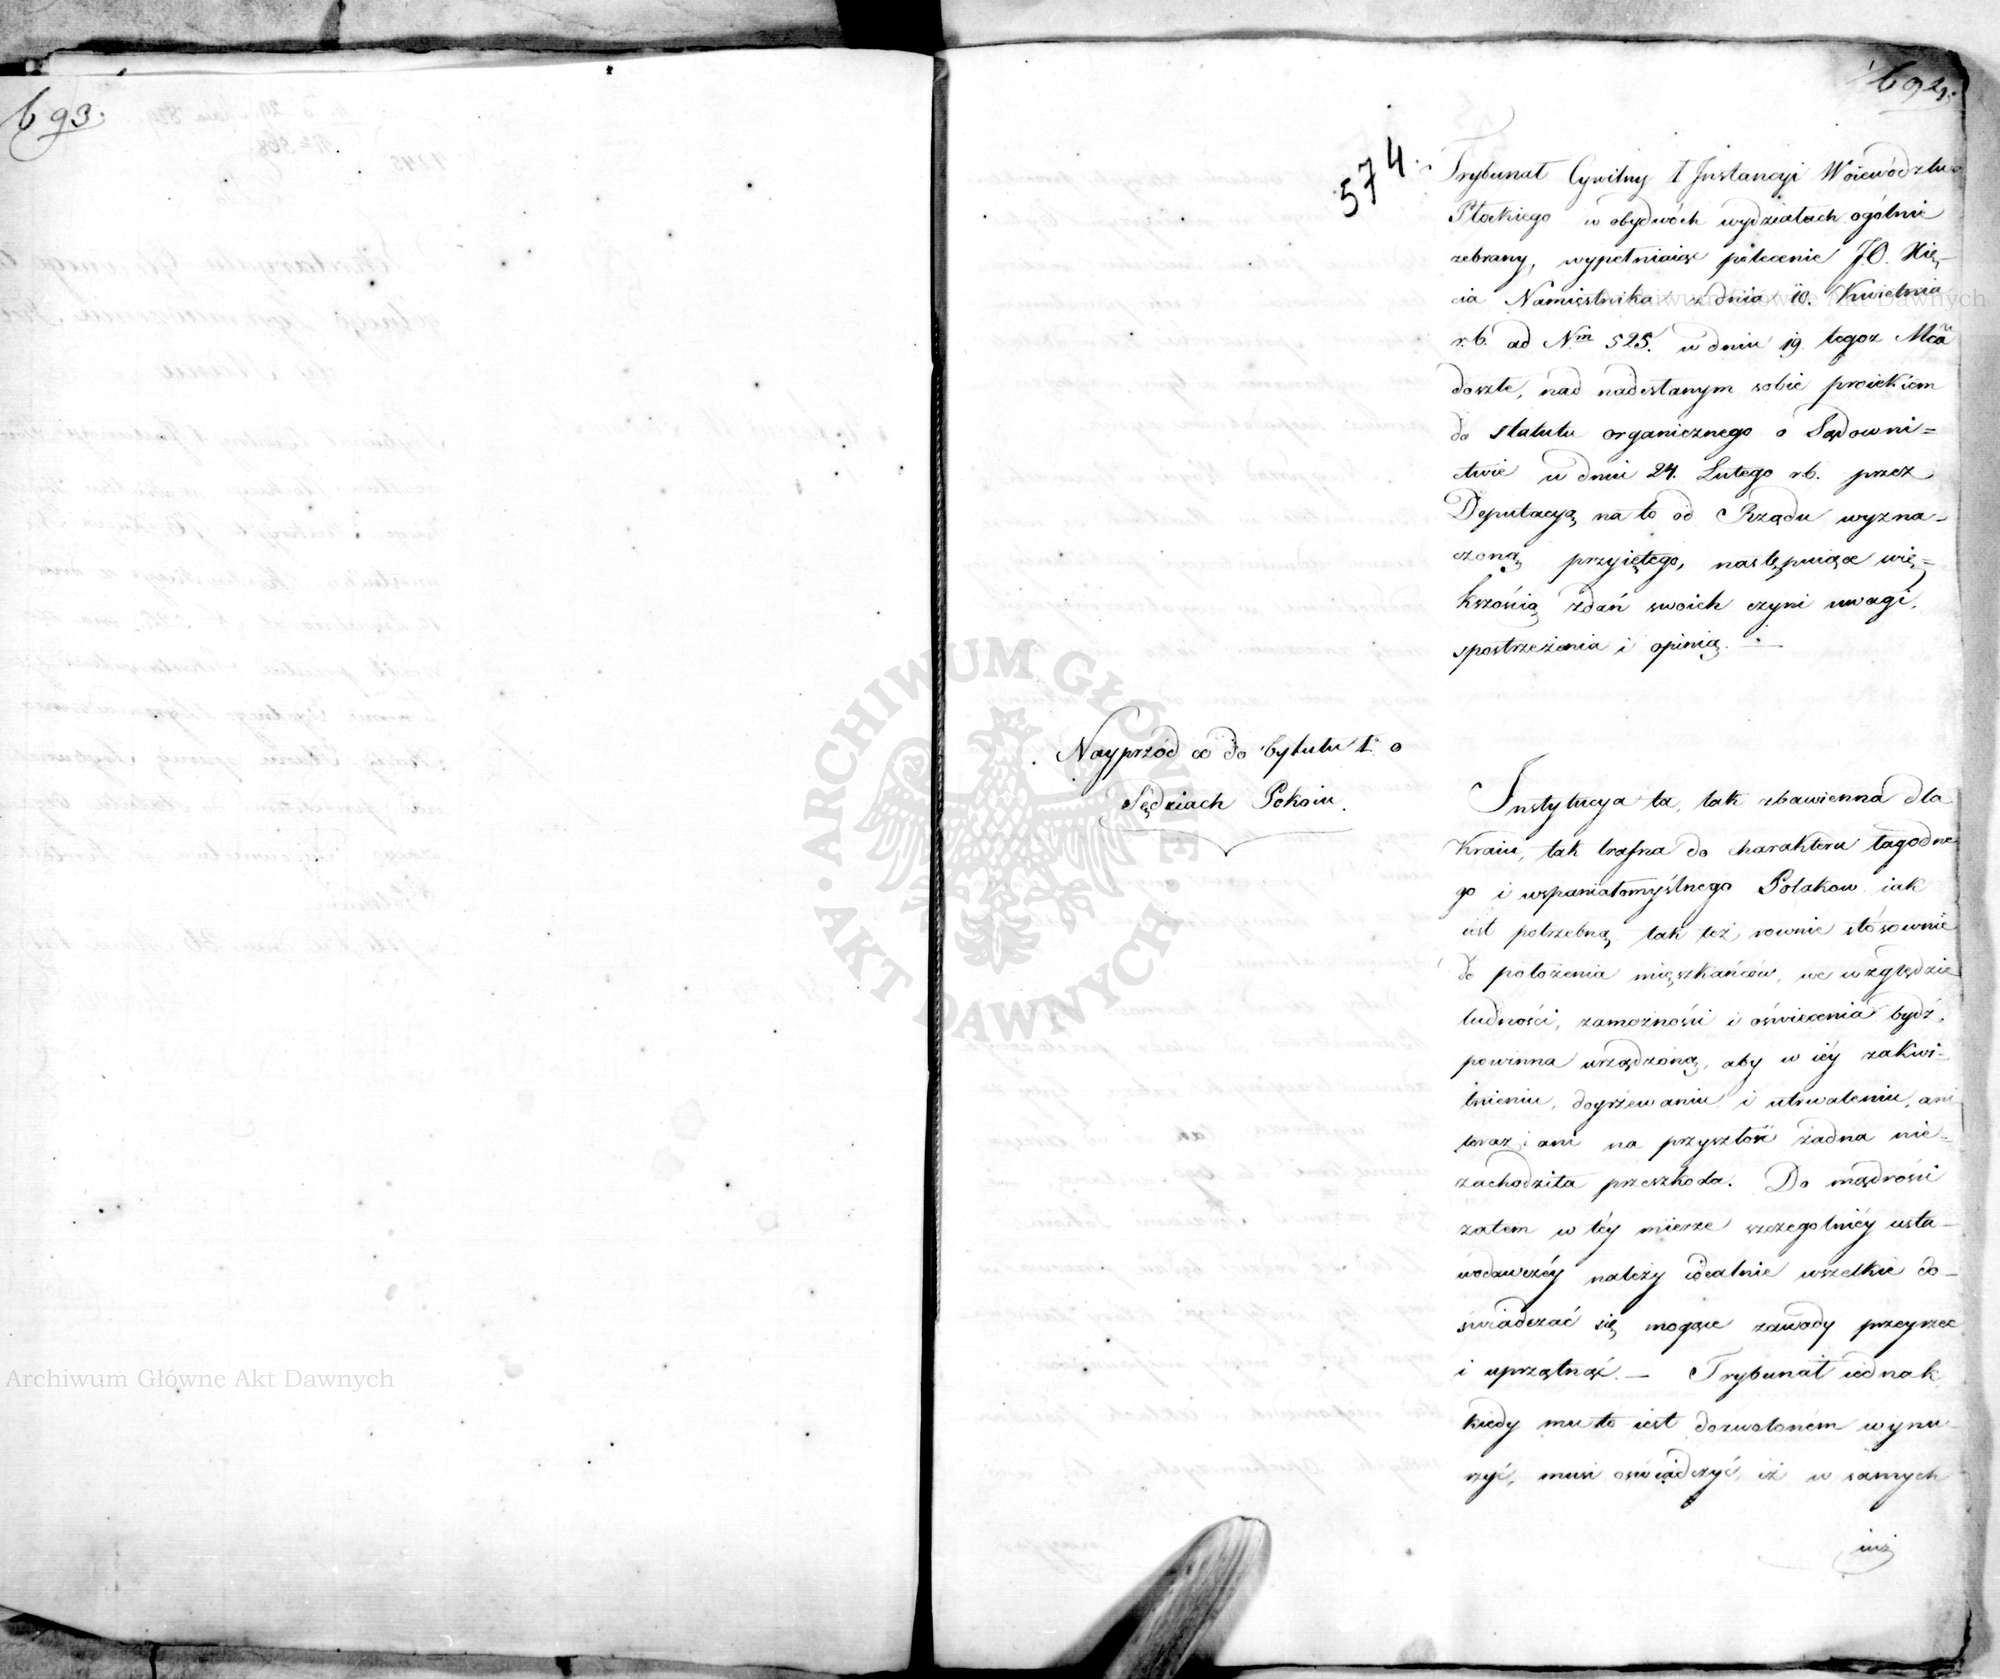 693.
692.
574.
Trybunał Cywilny I Instancyi Woiewództwa
Płockiego w obydwóch wydziałach ogólnie
zebrany, wypełniaiąc polecenie J.O. Xię-
cia Namiestnika z dnia 10. Kwietnia
r.b. ad Nm 525. w dniu 19. tegoz Mca
doszłe, nad nadesłanym sobie proiektem
do statutu organicznego o Sądowni=
ctwie w dniu 24. Lutego r.b. przez
Deputacyą na to od Rządu wyzna-
czoną przyiętego, następuiące wię=
kszością zdań swoich czyni uwagi,
spostrzeżenia i opinią.
Nayprzód co do Tytułu I. o
Sędziach Pokoiu.
Instytucya ta, tak zbawienna dla
Kraiu, tak trafna do charakteru łagodne
go i wspaniałomyślnego Polakow iak
iest potrzebną, tak też rownie stósownie
do położenia mięszkańców, we względzie
ludności, zamożności i oświecenia bydź
powinna urządzoną, aby w iéy zakwi-
tnieniu, doyrzewaniu i utrwaleniu, ani
teraz, ani na przyszłość żadna nie-
zachodziła przeszkoda. Do mądrości
zatem w téy mierze szczegolniéy usta-
wodawczéy należy idealnie wszelkie do-
świadczać się mogące zawady przeyrzeć
i uprzątnąć. — Trybunał iednak,
kiedy mu to iest dozwoloném wynu-
rzyć, musi oświadczyć, iż w samych
iuż
Archiwum Główne Akt Dawnych
Archiwum Główne Akt Dawnych
ARCHIWUM GŁÓWNE AKT DAWNYCH